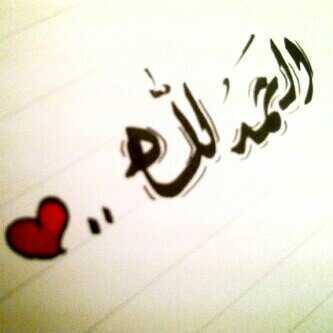 الحَمدُ للّه ..